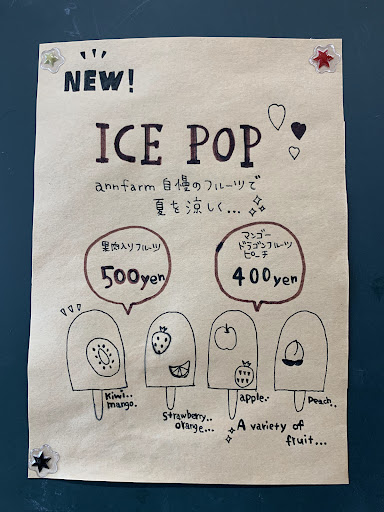 NEW!
ICE POP
annfarm 自慢のフルーツで
夏を涼しく...
果肉入りフルーツ
500yen
マンゴー
ドラゴンフルーツ
ピーチ
400yen
Kiwi..
mango.
Strawberry..
orange...
apple..
Peach..
A variety of
fruit...